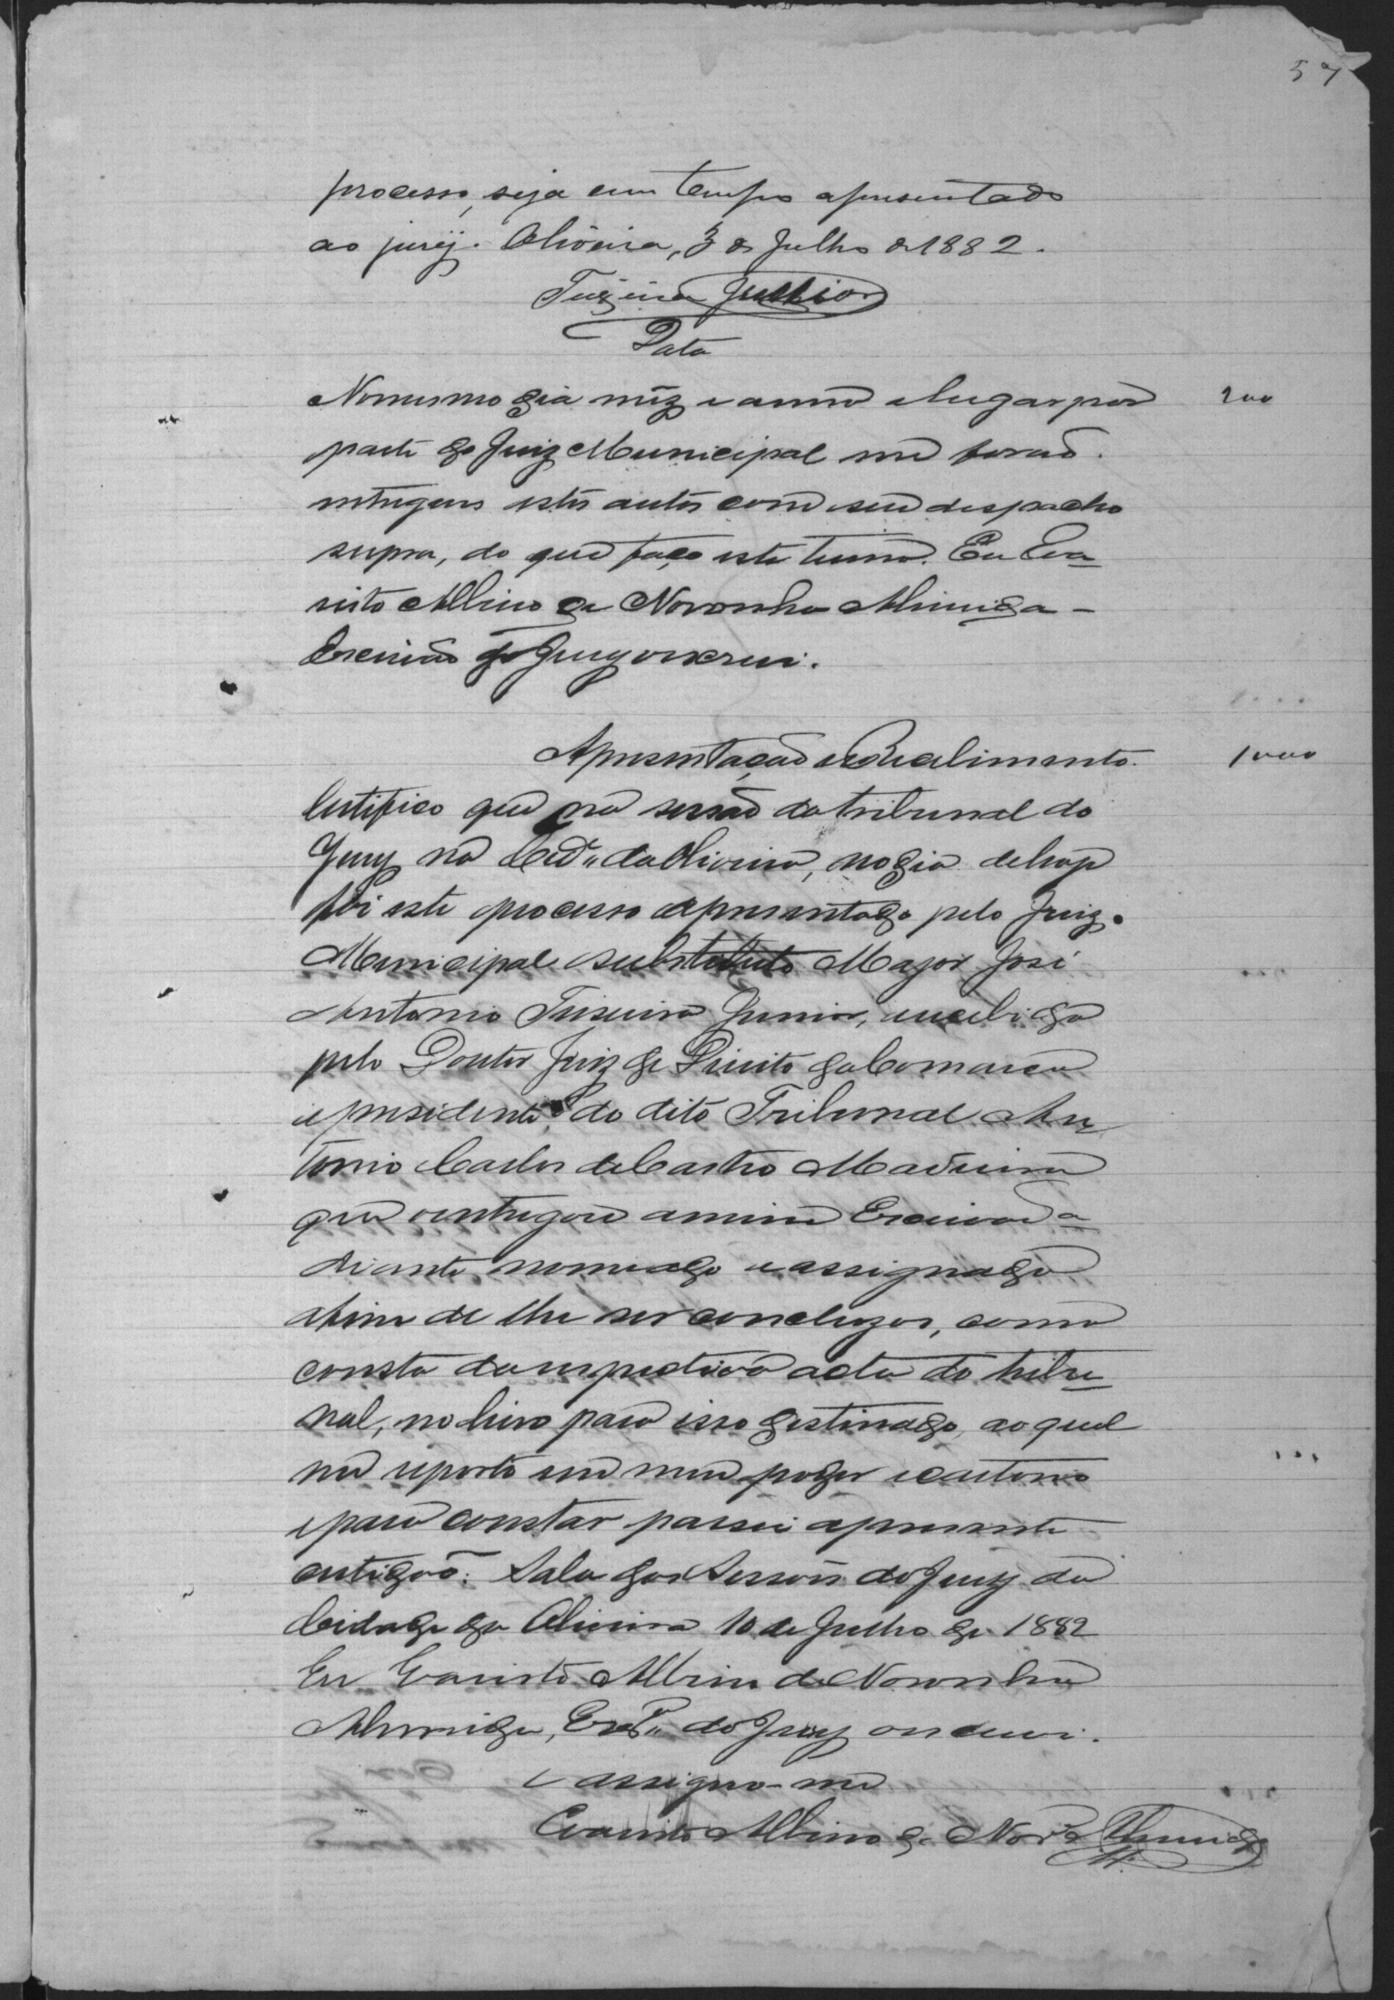 57
processo, seja em tempo apresentado
ao jury. Oliveira, 3 de Julho de 1882.
Teixeira Junior
Data
No mesmo dia mêz e anno e lugar por 200
parte do Juiz Municipal me forão
entregues estes autos com seu despacho
supra, do que faço este termo. Eu Eva
risto Albino de Noronha Almeida
Escrivão do Jury o escrevi.
Apresentação e Recebimento. 1000
Certifico que na sessão do tribunal do
Jury na Cid.e da Oliveira, no dia de hoje
foi este processo apresentado pelo Juiz
Municipal substituto Major José
Antonio Teixeira Junior, e recebido
pelo Doutor Juiz de Direito da Comarca
e presidente do dito Tribunal An
tonio Carlos de Castro Madeira
que o entregou a mim Escrivão a
diante nomeado e assignado
afim de lhe ser concluzos, como
consta da respectiva acta do tribu
nal, no livro para isso destinado, ao qual
me reporto em meu poder e cartorio
e para constar passei a presente
certidão. Sala das Sessões do Jury da
Cidade da Oliveira 10 de Julho de 1882
Eu Evaristo Albino de Noronha
Almeida, Escr.m do Jury o escrevi.
e assigno-me
Evaristo Albino de Nor.a Almeida